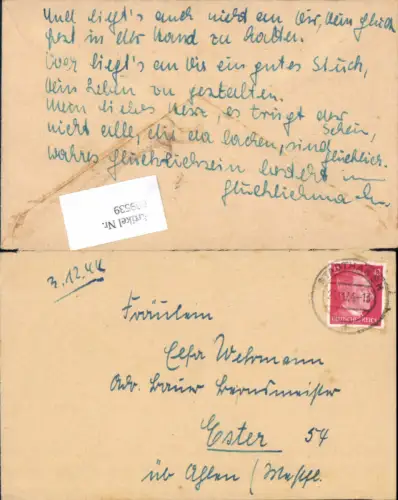 Und liegt's auch nicht an Dir, Dein Glück
fest in der Hand zu halten.
Doch liegt's an Dir ein gutes Stück,
Dein Leben zu gestalten.
Mein liebes Herz, es trügt der Schein,
nicht alle, die da lachen, sind glücklich.
wahres Glücklichsein besteht im
Glücklichmachen.
Artikel Nr.
3.12.44
Fräulein
Elfa Wehrmann
Adr. Bauer
Ester 54
üb Ahlen / Westf.
DEUTSCHES REICH